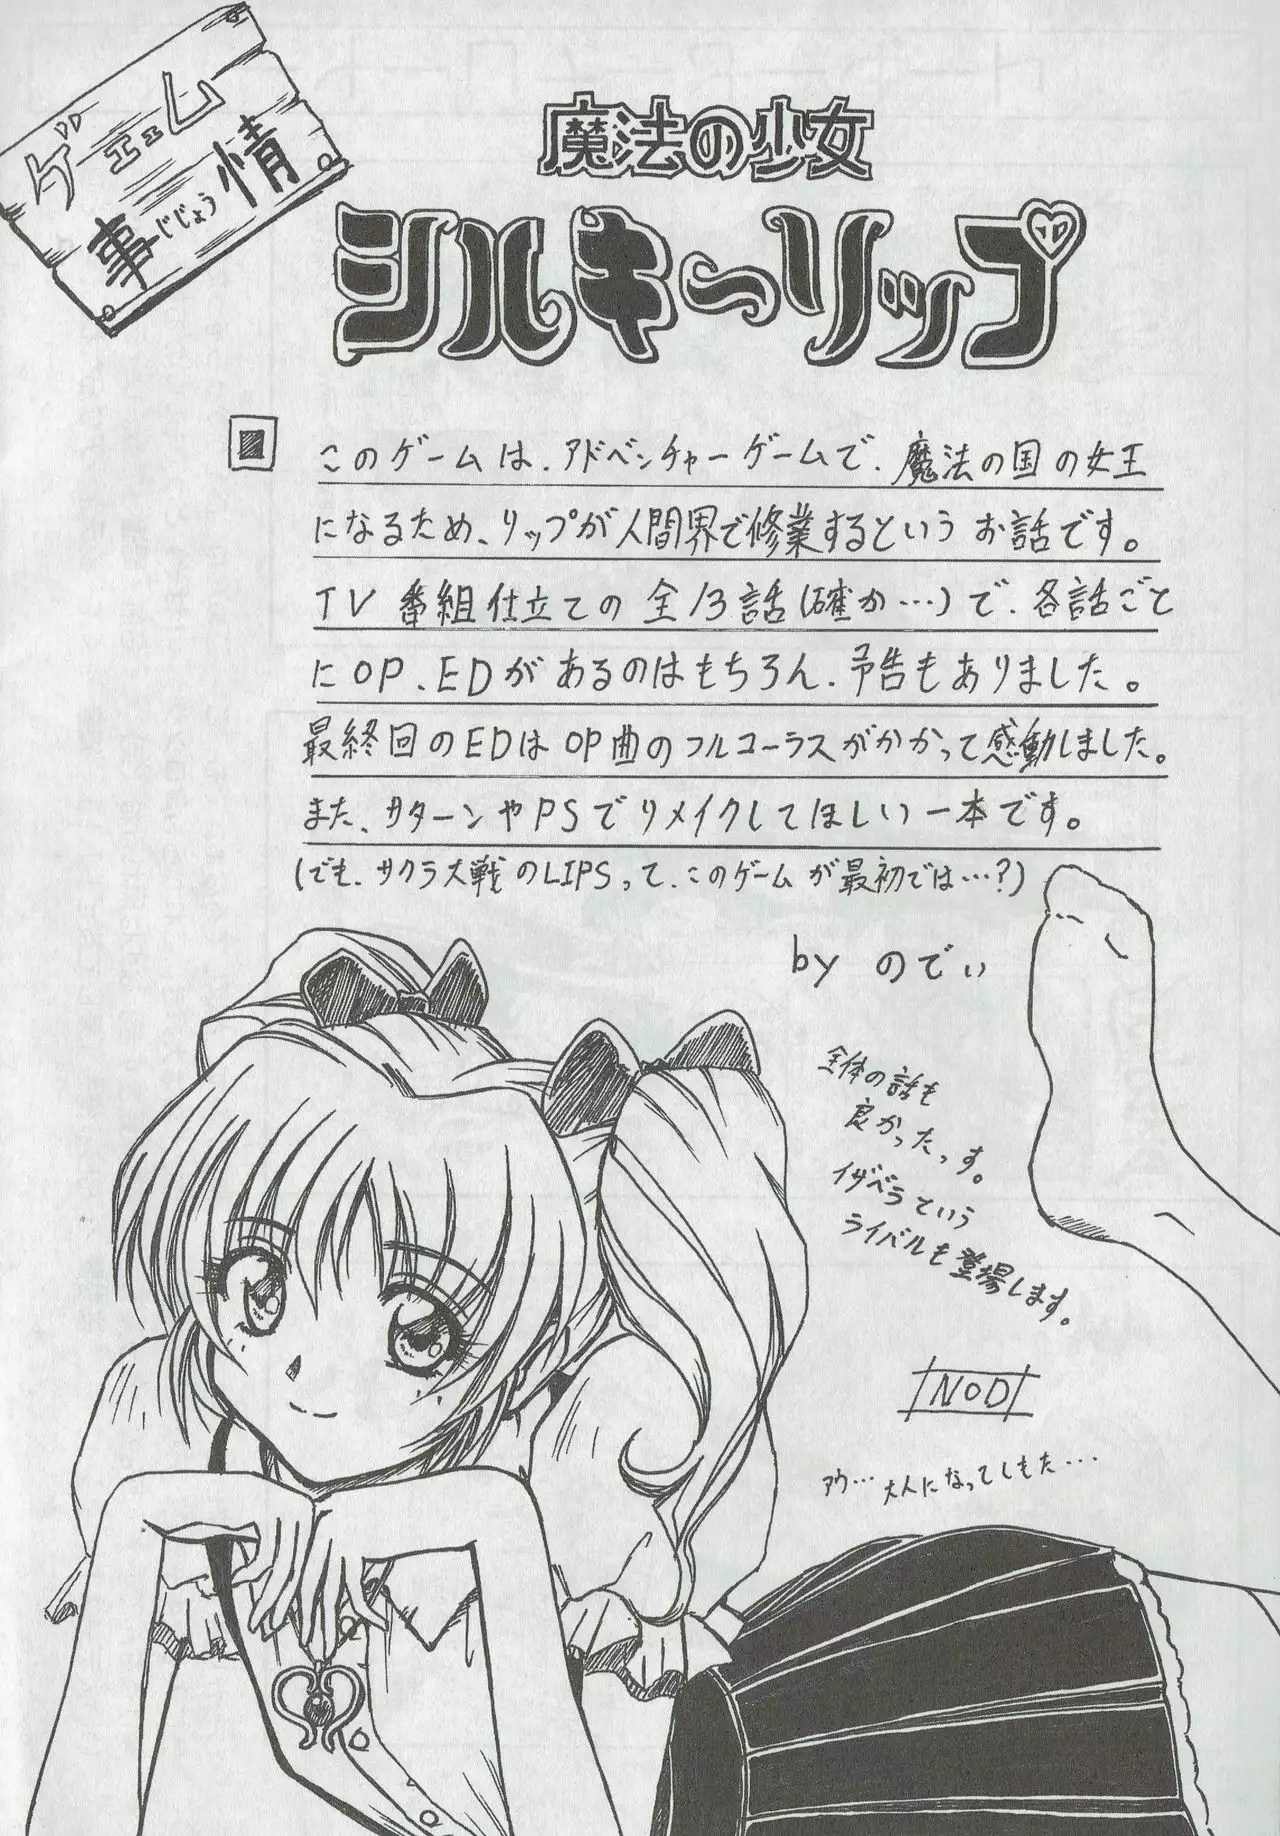 ゲェエム
事情
じじょう
魔法の少女
シルキーリップ
このゲームは、アドベンチャーゲームで、魔法の国の女王
になるため、リップが人間界で修業するという お話です。
TV 番組仕立ての 全13話(確か…)で、各話ごと
にOP、EDがあるのはもちろん、予告もありました。
最終回のEDはOP曲のフルコーラスがかかって感動しました。
また、サターンやPSでリメイクしてほしい一本です。
(でも、サクラ大戦のLIPSって、このゲームが最初では…?)
by のでぃ
全体の話も
良かったっす。
イザベラという
ライバルも登場します。
NOD
アウ… 大人になってしもた…